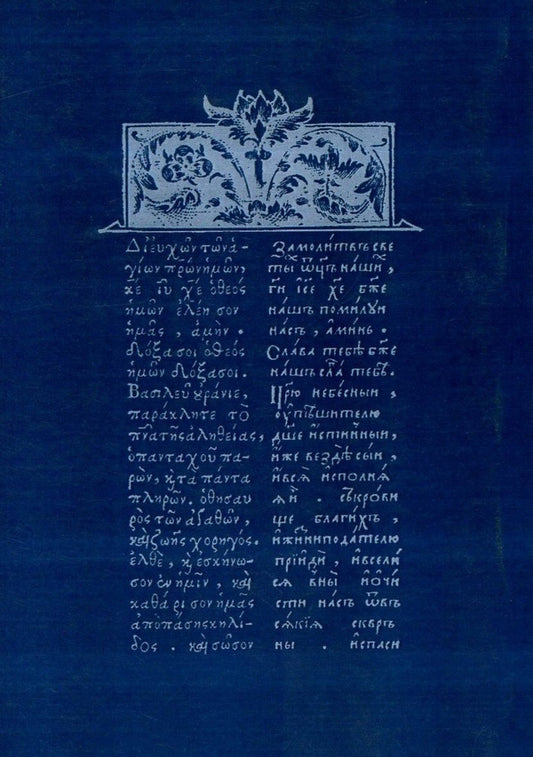 Δι' εὐχῶν τῶν ἁ-
γίων πρ̅ων ἡμῶν,
κ̅ε ι̅υ χ̅ε ὁ θεός
ἡμῶν ἐλέησον
ἡμᾶς, ἀμήν.
Δόξα σοι ὁ θεός
ἡμῶν δόξα σοι.
Βασιλεῦ οὐράνιε,
παράκλητε τὸ
πν̅α τῆς ἀληθείας,
ὁ πανταχοῦ πα-
ρὼν, κ̀ τὰ πάντα
πληρῶν. ὁ θησαυ
ρὸς τῶν ἀγαθῶν,
καὶ ζωῆς χορηγός.
ἐλθὲ, κ̀ ἐσκήνω-
σον ἐν ἡμῖν, καὶ
καθάρισον ἡμᾶς
ἀπὸ πάσης κηλί-
δος. καὶ σῶσον
За молитвъ све
ты ѿц҃ъ на́ши,
гп҃и іс҃е хс҃е бж҃е
на́шъ поми́луи
на́съ, а҆ми́нь.
Сла́ва тебѣ̀ бж҃е
на́шъ сла́ тебѣ.
Цр҃ю небе́сныи,
оу҆тѣ́шителю
дш҃е и҆́стинныи,
и҆́же вездѣ̀ сы́и,
и҆ всѧ̀ и҆сполнѧ́
ѧ́й. съкрови
ще благи́хъ,
и҆ жи́зни пода́телю
прїидѝ, и҆ всели́
сѧ в ны̀ и҆ ѡ҆чи́
сти на́съ ѿ въ
сѧ́кїѧ сквръ
ны. и҆ спаси